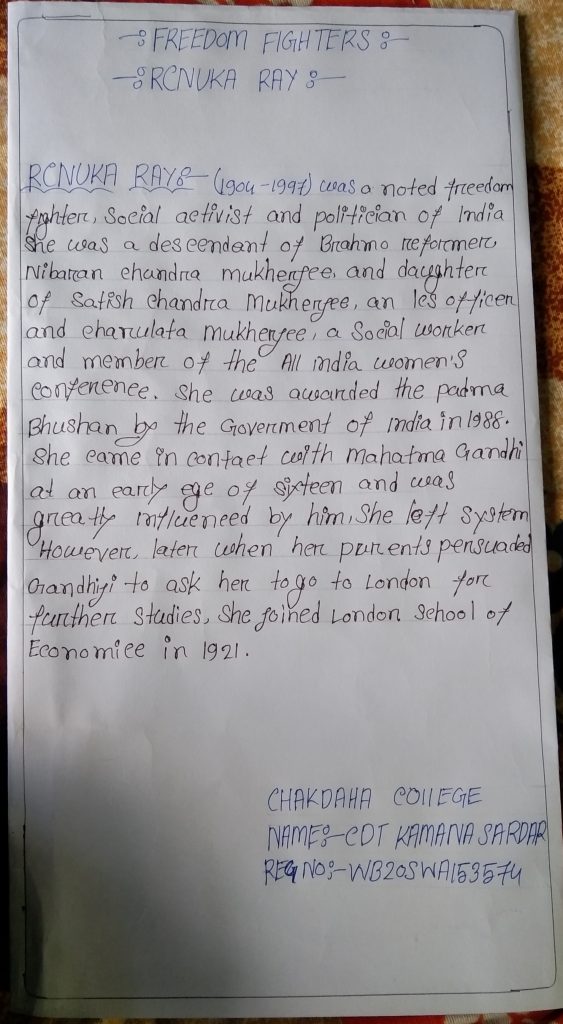 -: FREEDOM FIGHTERS :-
-: RCNUKA RAY :-
RCNUKA RAY:- (1904-1997) was a noted freedom
fighter, Social activist and politician of India
She was a descendant of Brahmo reformer,
Nibaran chandra mukherjee, and daughter
of Satish Chandra Mukherjee, an Ics officer
and charulata Mukherjee, a Social worker
and member of the All india women's
conference. She was awarded the padma
Bhushan by the Goverment of india in 1988.
She came in contact with Mahatma Gandhi
at an early ege of sixteen and was
greatly influenced by him. She left System
However, later when her purents persuaded
Gandhiji to ask her to go to London for
further Studies, She joined London School of
Economice in 1921.
CHAKDAHA COllEGE
NAME:- CDT KAMANA SARDAR
REG NO:- WB20SWA153574